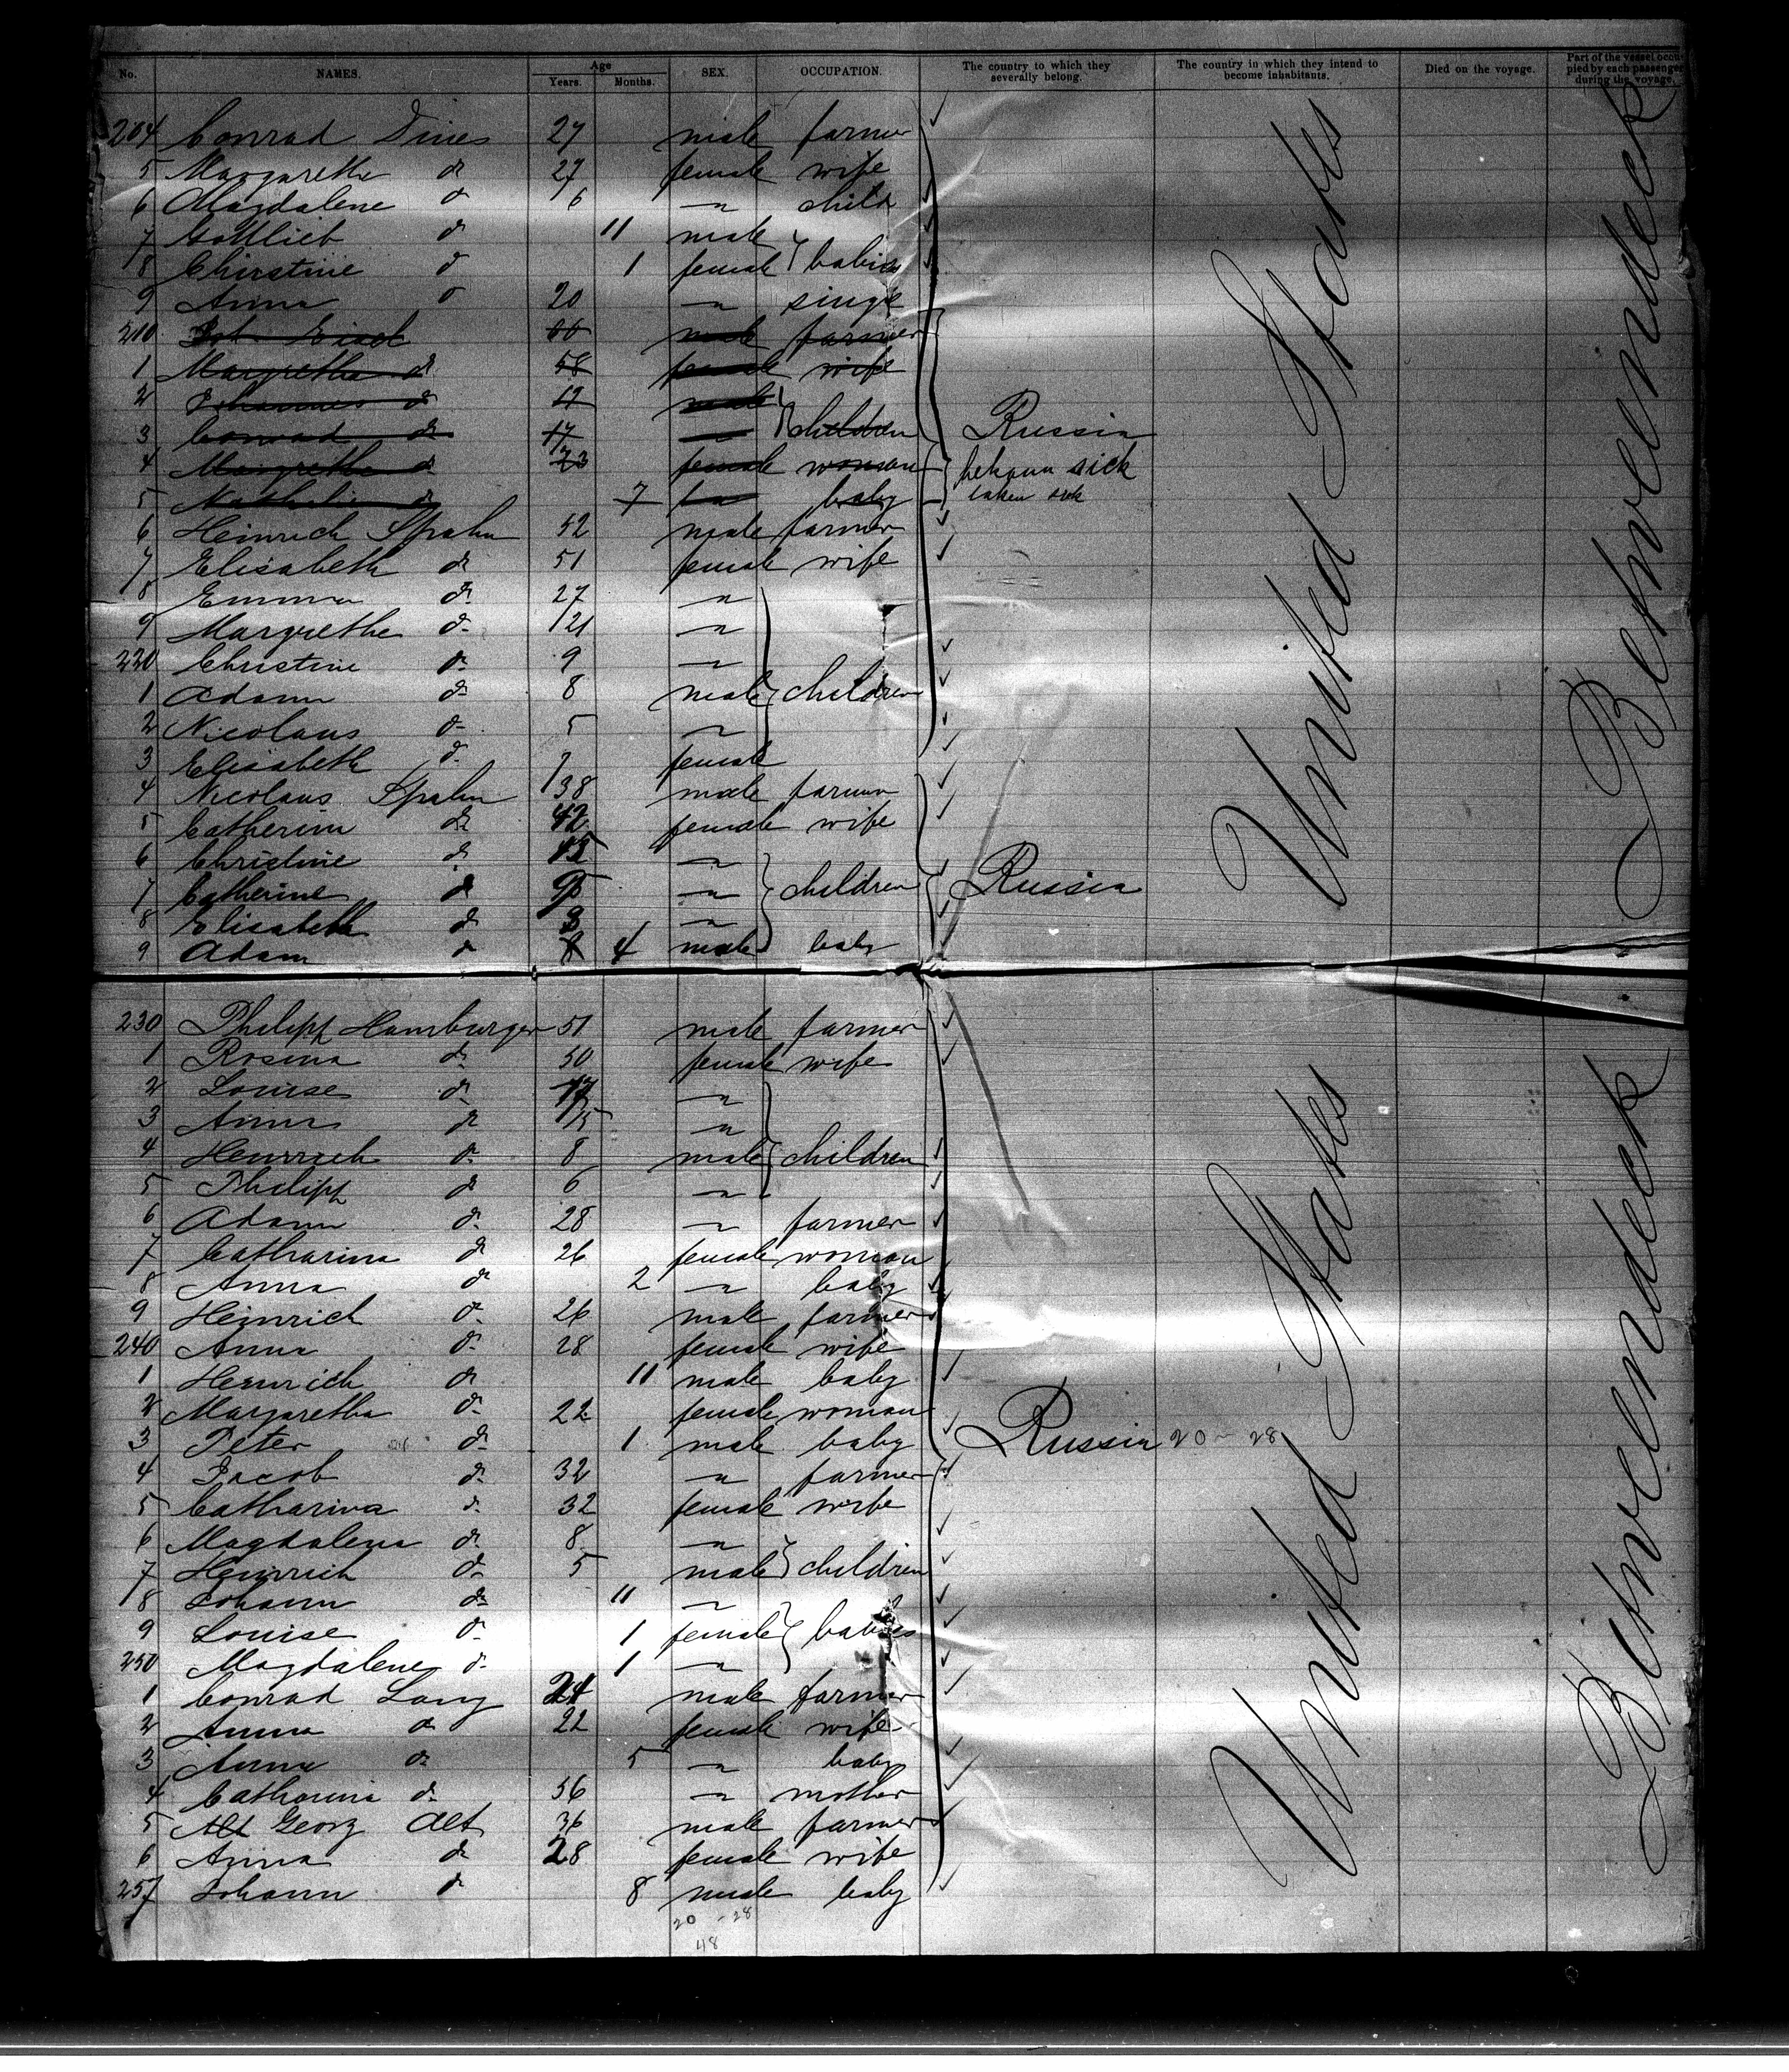 No. NAMES. Age Years. Months. SEX. OCCUPATION. The country to which they severally belong. The country in which they intend to become inhabitants. Died on the voyage. Part of the vessel occupied by each passenger during the voyage.
204 Conrad Dines 27 male farmer
5 Margarethe do 27 female wife
6 Magdalene do 6 " child
7 Gottlieb do 11 male
8 Christine do 1 female babies
9 Anna do 20 " single
210 male farmer
1 Margretha do 58 female wife
2 Johannes do male
3 Conrad do 17 " children Russia
4 Margretha do 23 female woman sick
5 do 7 baby taken sick
6 Heinrich Spahn 52 male farmer
7 Elisabeth do 51 female wife
8 Emma do 27 "
9 Margrethe do 21 "
220 Christine do 9 "
1 Adam do 8 male children
2 Nicolaus do 5 "
3 Elisabeth do female
4 Nicolaus Spahn 38 male farmer
5 Catherine do 42 female wife
6 Christine do "
7 Catherine do " children Russia
8 Elisabeth do 3 "
9 Adam do 4 male baby
230 Philipp Hamburger 51 male farmer
1 Rosina do 50 female wife
2 Louise do 17 "
3 Anna do 15 "
4 Heinrich do 8 male children
5 Philipp do 6 "
6 Adam do 28 " farmer
7 Catharina do 26 female woman
8 Anna do 2 " baby
9 Heinrich do 26 male farmer
240 Anna do 28 female wife
1 Heinrich do 11 male baby
2 Margaretha do 22 female woman
3 Peter do 1 male baby Russia 20 - 28
4 Jacob do 32 " farmer
5 Catharina do 32 female wife
6 Magdalena do 8 "
7 Heinrich do 5 male children
8 Johann do 11 "
9 Louise do 1 female babies
250 Magdalene do 1 "
1 Conrad Lang 24 male farmer
2 Anna do 22 female wife
3 Anna do 5 " baby
4 Catharina do 56 " mother
5 Alt Georg Alt 36 male farmer
6 Anna do 28 female wife
257 Johann do 8 male baby
20 - 28
48
United States
Betweendeck
United States
Betweendeck